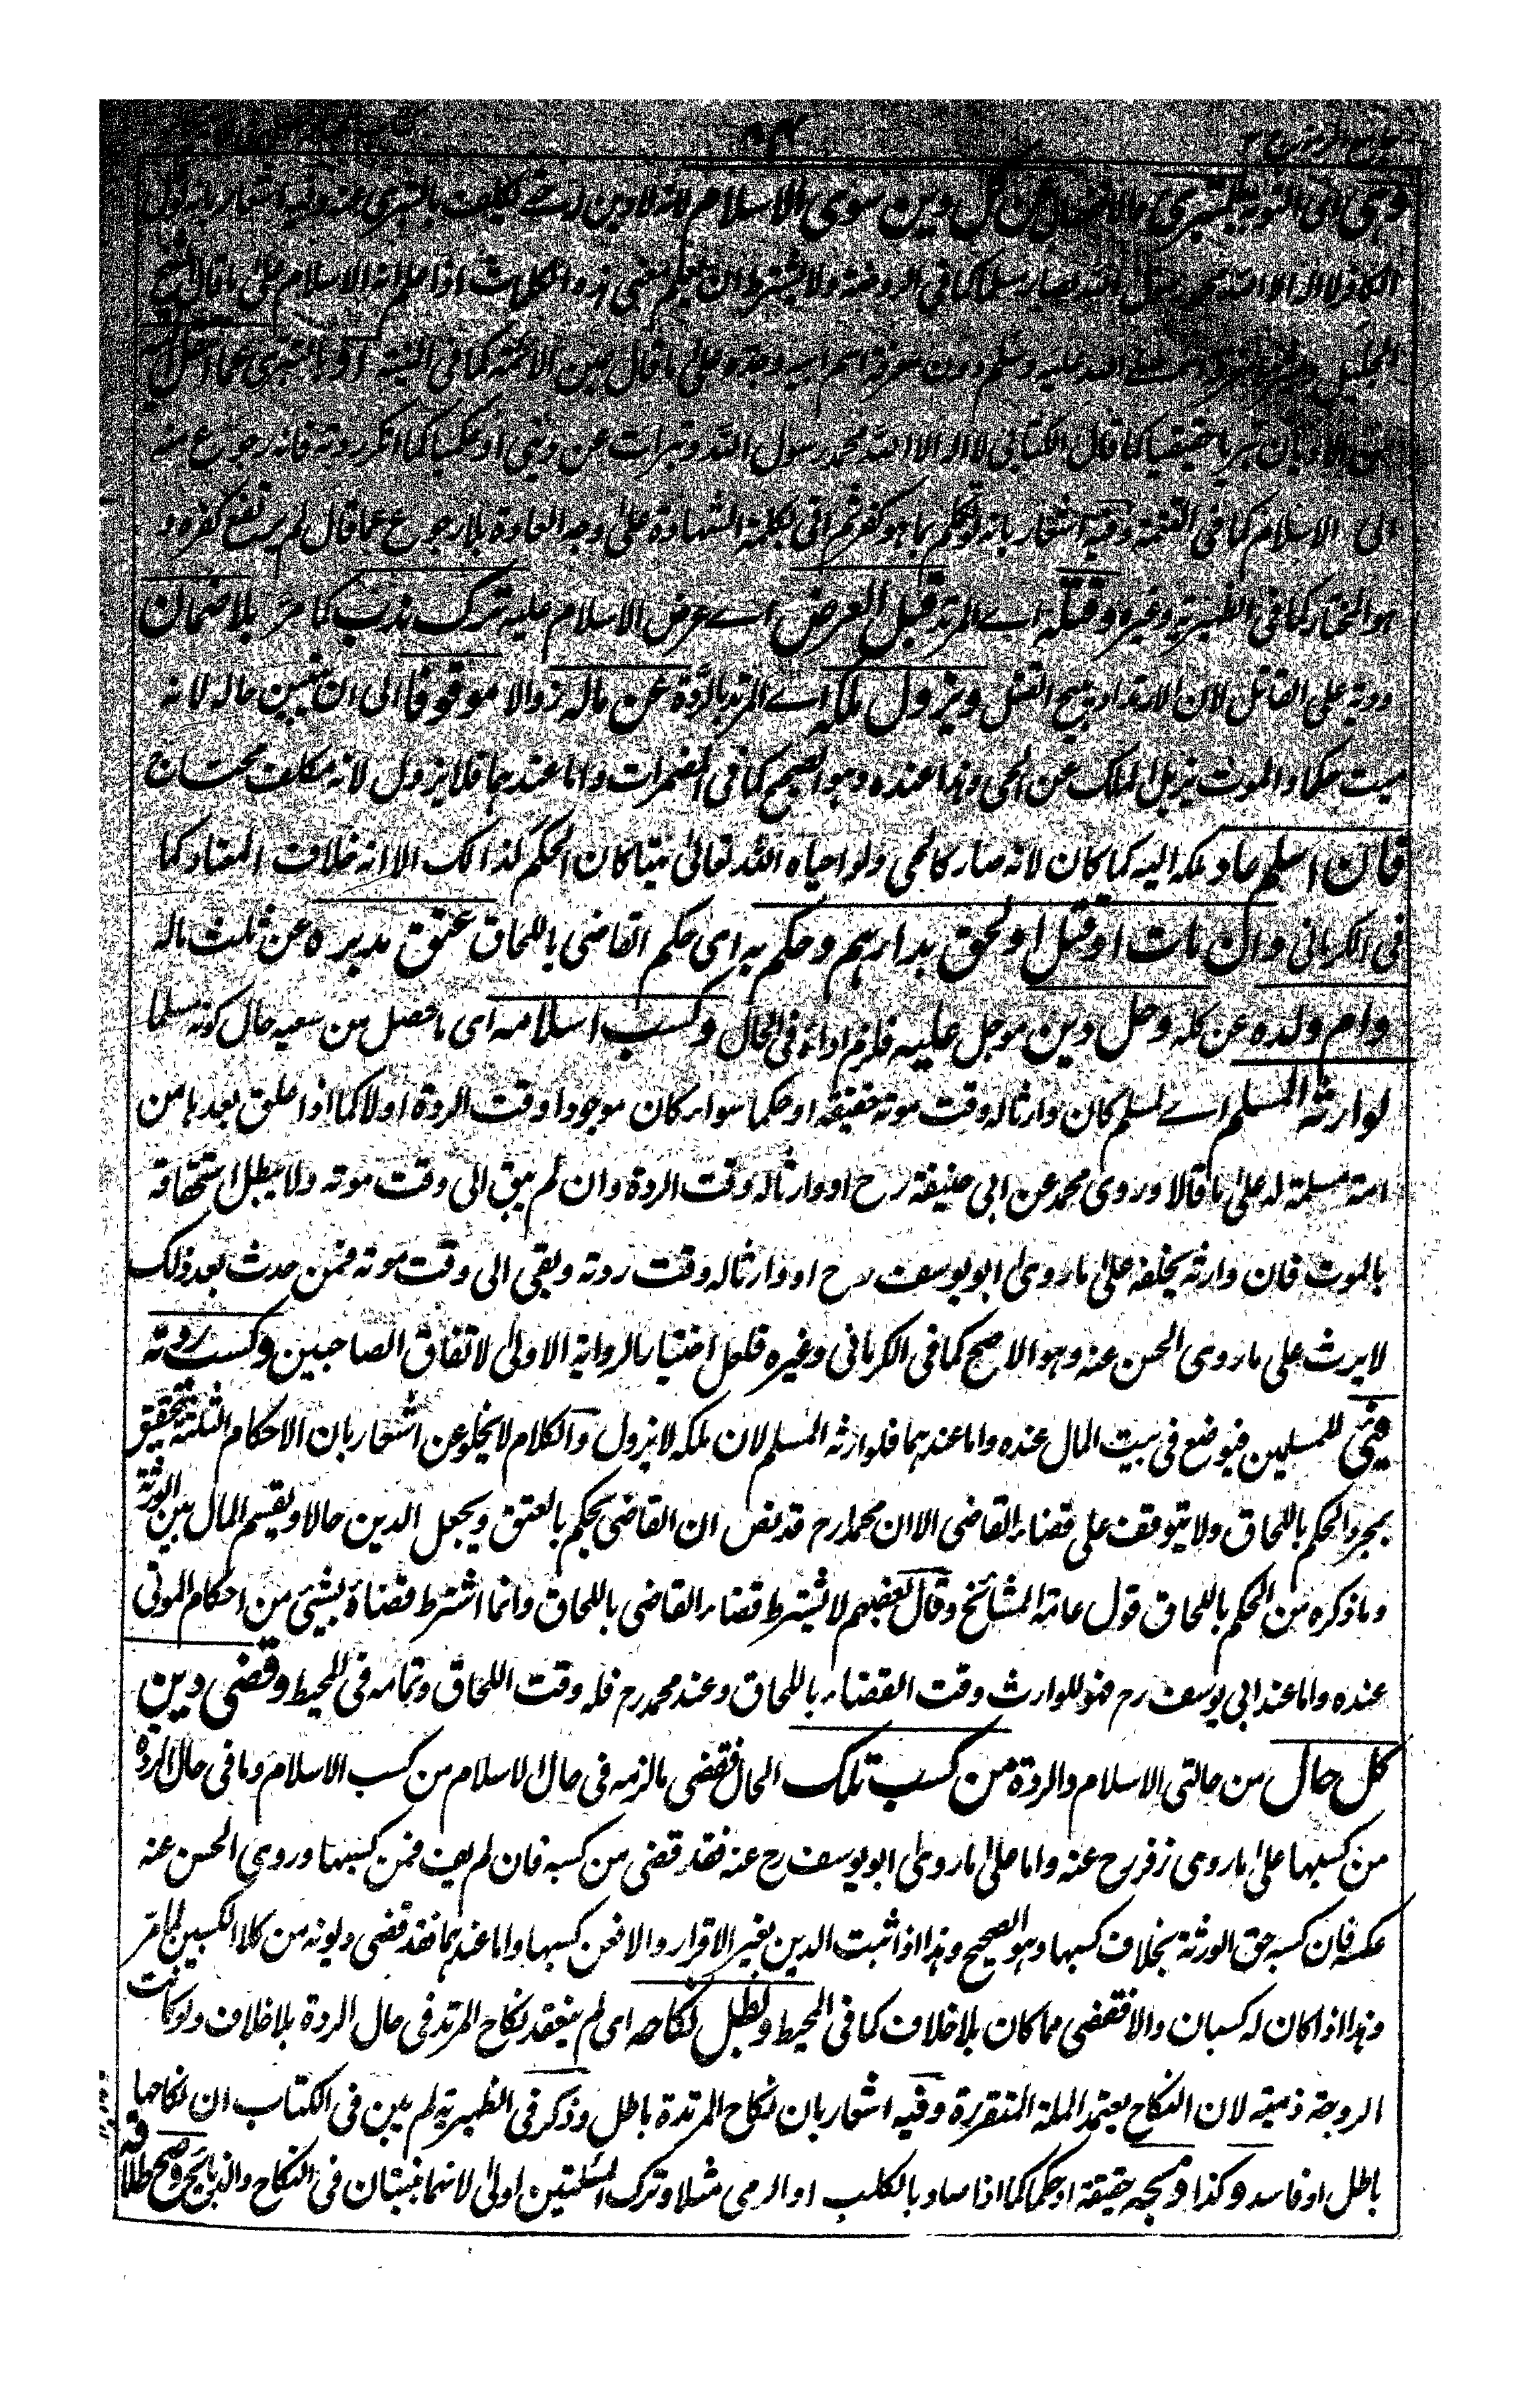 وهي اى التوبة بالتبرى بالانفصال عن كل دين سوى الاسلام لانه لا دين له حتى يكلف بالتبرى عنه وفيه اشعار بانه لو قال
الكافر لا اله الا الله محمد رسول الله لصار مسلما كما فى الروضة ولا يشترط ان يعلم معنى هذه الكلمات اذا علم انه الاسلام على ما قال الشيخ
الجليل صلى الله عليه وسلم دون معرفة اسم ابيه وجده على ما قال عين الائمة كما فى المنية او بالتبرى عما انتقل اليه
من الاديان تبريا حقيقيا كما قال الكتابى لا اله الا الله محمد رسول الله وتبرات عن دينى او حكميا كما انكر ردته فانه رجوع منه
الى الاسلام كما فى التتمة وفيه اشعار بانه لو تكلم بما هو كفر ثم اتى بكلمة الشهادة على وجه العادة بلا رجوع عما قال لم يرتفع كفره و
هو المختار كما فى الظهيرية وغيره وقتله اے المرتد قبل العرض اے عرض الاسلام عليه ترك ندب كما مر بلا ضمان
ودية على القاتل لان الارتداد يبيح القتل ويزول ملكه اے المرتد بالردة عن ماله زوالا موقوفا الى ان يتبين حاله لانه
ميت حكما والموت يزيل الملك عن الحى وهذا عنده وهو الصحيح كما فى المضمرات واما عندهما فلا يزول لانه مكلف محتاج
فان اسلم عاد ملكه اليه كما كان لانه صار كالحى ولو احياه الله تعالى ميتا كان الحكم كذالك الا انه خلاف المعتاد كما
فى الكرمانى وان مات او قتل او لحق بدارهم وحكم به اى حكم القاضى باللحاق عتق مدبره عن ثلث ماله
وام ولده عن كله وحل دين موجل عليه فلزم اداءه فى الحال وكسب اسلامه اى ما حصل من سعيه حال كونه مسلما
لوارثه المسلم اے لمسلم كان وارثا له وقت موته حقيقة او حكما سواء كان موجودا وقت الردة اولا كما اذا علق بعدها من
امة مسلمة له على ما قالا وروى محمد عن ابى حنيفة رح او وارثا له وقت الردة وان لم يبق الى وقت موته ولا يبطل استحقاقه
بالموت فان وارثه يخلفه على ما روى ابو يوسف رح او وارثا له وقت ردته وبقى الى وقت موته فمن حدث بعد ذلك
لا يرث على ما روى الحسن عنه وهو الاصح كما فى الكرمانى وغيره فلعل اختيار الرواية الاولى لاتفاق الصاحبين وكسب ردته
فيئ للمسلمين فيوضع فى بيت المال عنده واما عندهما فلوارثه المسلم لان ملكه لا يزول والكلام لا يخلو عن اشعار بان الاحكام الثلثة تحقيق
بمجرد الحكم باللحاق ولا يتوقف على قضاء القاضى الا ان محمدا رح قد نص ان القاضى يحكم بالعتق ويجعل الدين حالا ويقسم المال بين الورثة
وما ذكره من الحكم باللحاق قول عامة المشائخ وقال بعضهم لا يشترط قضاء القاضى باللحاق وانما اشترط قضاؤه بشيئ من احكام الموتى
عنده واما عند ابى يوسف رح فهو للوارث وقت القضاء باللحاق وعند محمد رح فله وقت اللحاق وتمامه فى المحيط وقضى دين
كل حال من حالتى الاسلام والردة من كسب تلك الحال فقضى ما لزمه فى حال الاسلام من كسب الاسلام وما فى حال الردة
من كسبها على ما روى زفر رح عنه واما على ما روى ابو يوسف رح عنه فقد قضى من كسبه فان لم يف فمن كسبها وروى الحسن عنه
عكسه فان كسبه حق الورثة بخلاف كسبها وهو الصحيح وهذا اذا ثبت الدين بغير الاقرار والا فمن كسبها واما عندهما فقد قضى ديونه من كلا الكسبين لما مر
وهذا اذا كان له كسبان والا فقضى مما كان بلا خلاف كما فى المحيط وبطل نكاحه اى لم ينعقد نكاح المرتد فى حال الردة بلا خلاف ولو كانت
الزوجة ذمية لان النكاح يعتمد الملة المتقررة وفيه اشعار بان نكاح المرتدة باطل وذكر فى الظهيرية لم يبين فى الكتاب ان نكاحها
باطل او فاسد وكذا ذبحه حقيقة او حكما كما اذا صاد بالكلب او الرمى مثلا وترك المسئلتين اولى لانهما مبينتان فى النكاح والذبائح وصح طلاقه